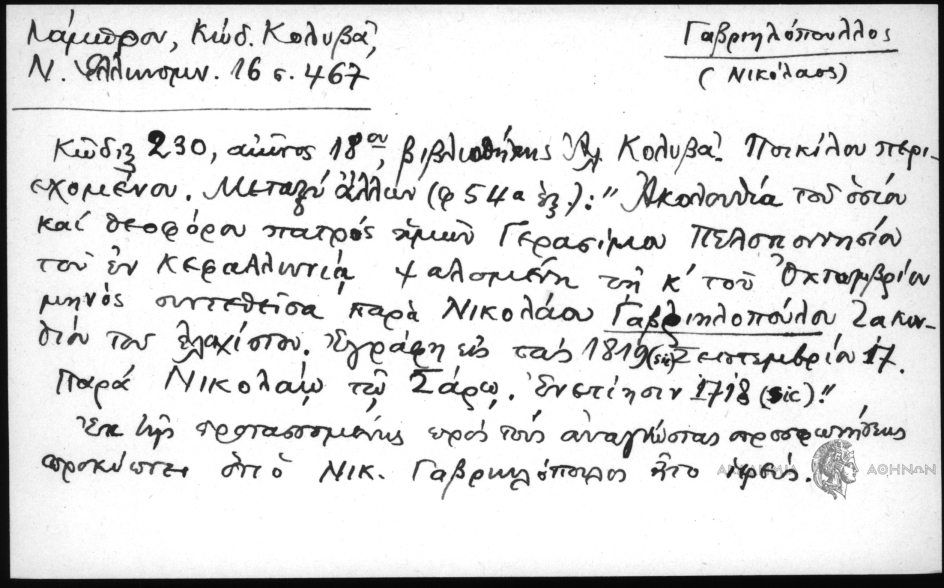 Λάμπρου, Κώδ. Κολυβᾶ,
Ν. Ἑλληνομν. 16 σ. 467
Γαβριηλόπουλλος
(Νικόλαος)
Κῶδιξ 230, αἰῶνος 18ου, βιβλιοθήκης Ἀλ. Κολυβᾶ. Ποικίλου περι-
εχομένου. Μεταξὺ ἄλλων (φ 54α ἑξ.): "Ἀκολουθία τοῦ ὁσίου
καί θεοφόρου πατρός ἡμῶν Γερασίμου Πελοποννησίου
τοῦ ἐν Κεφαλληνίᾳ ψαλομένη τῇ κ' τοῦ Ὀκτωμβρίου
μηνός συντεθεῖσα παρὰ Νικολάου Γαβριηλοπούλου Ζακυν-
θίου τοῦ ἐλαχίστου. Ἐγράφη εἰς τας 1819 (sic) Σεπτεμβρίου 17.
Παρά Νικολάῳ τῷ Σάρῳ. Ἐνετίησιν 1718 (sic)."
Ἐκ τῆς προτασσομένης πρός τούς ἀναγνώστας προσφωνήσεως
προκύπτει ὅτι ὁ Νικ. Γαβριηλόπουλος ἦτο ἱερεύς.
ΑΚΑΔΗΜΙΑ ΑΘΗΝΩΝ